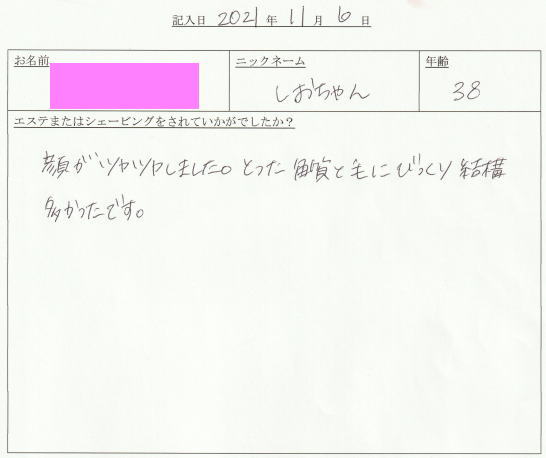 記入日 2021年 11月 6日
お名前 ニックネーム 年齢
しおちゃん 38
エステまたはシェービングをされていかがでしたか？
顔がツヤツヤしました。とった角質と毛にびっくり 結構
多かったです。